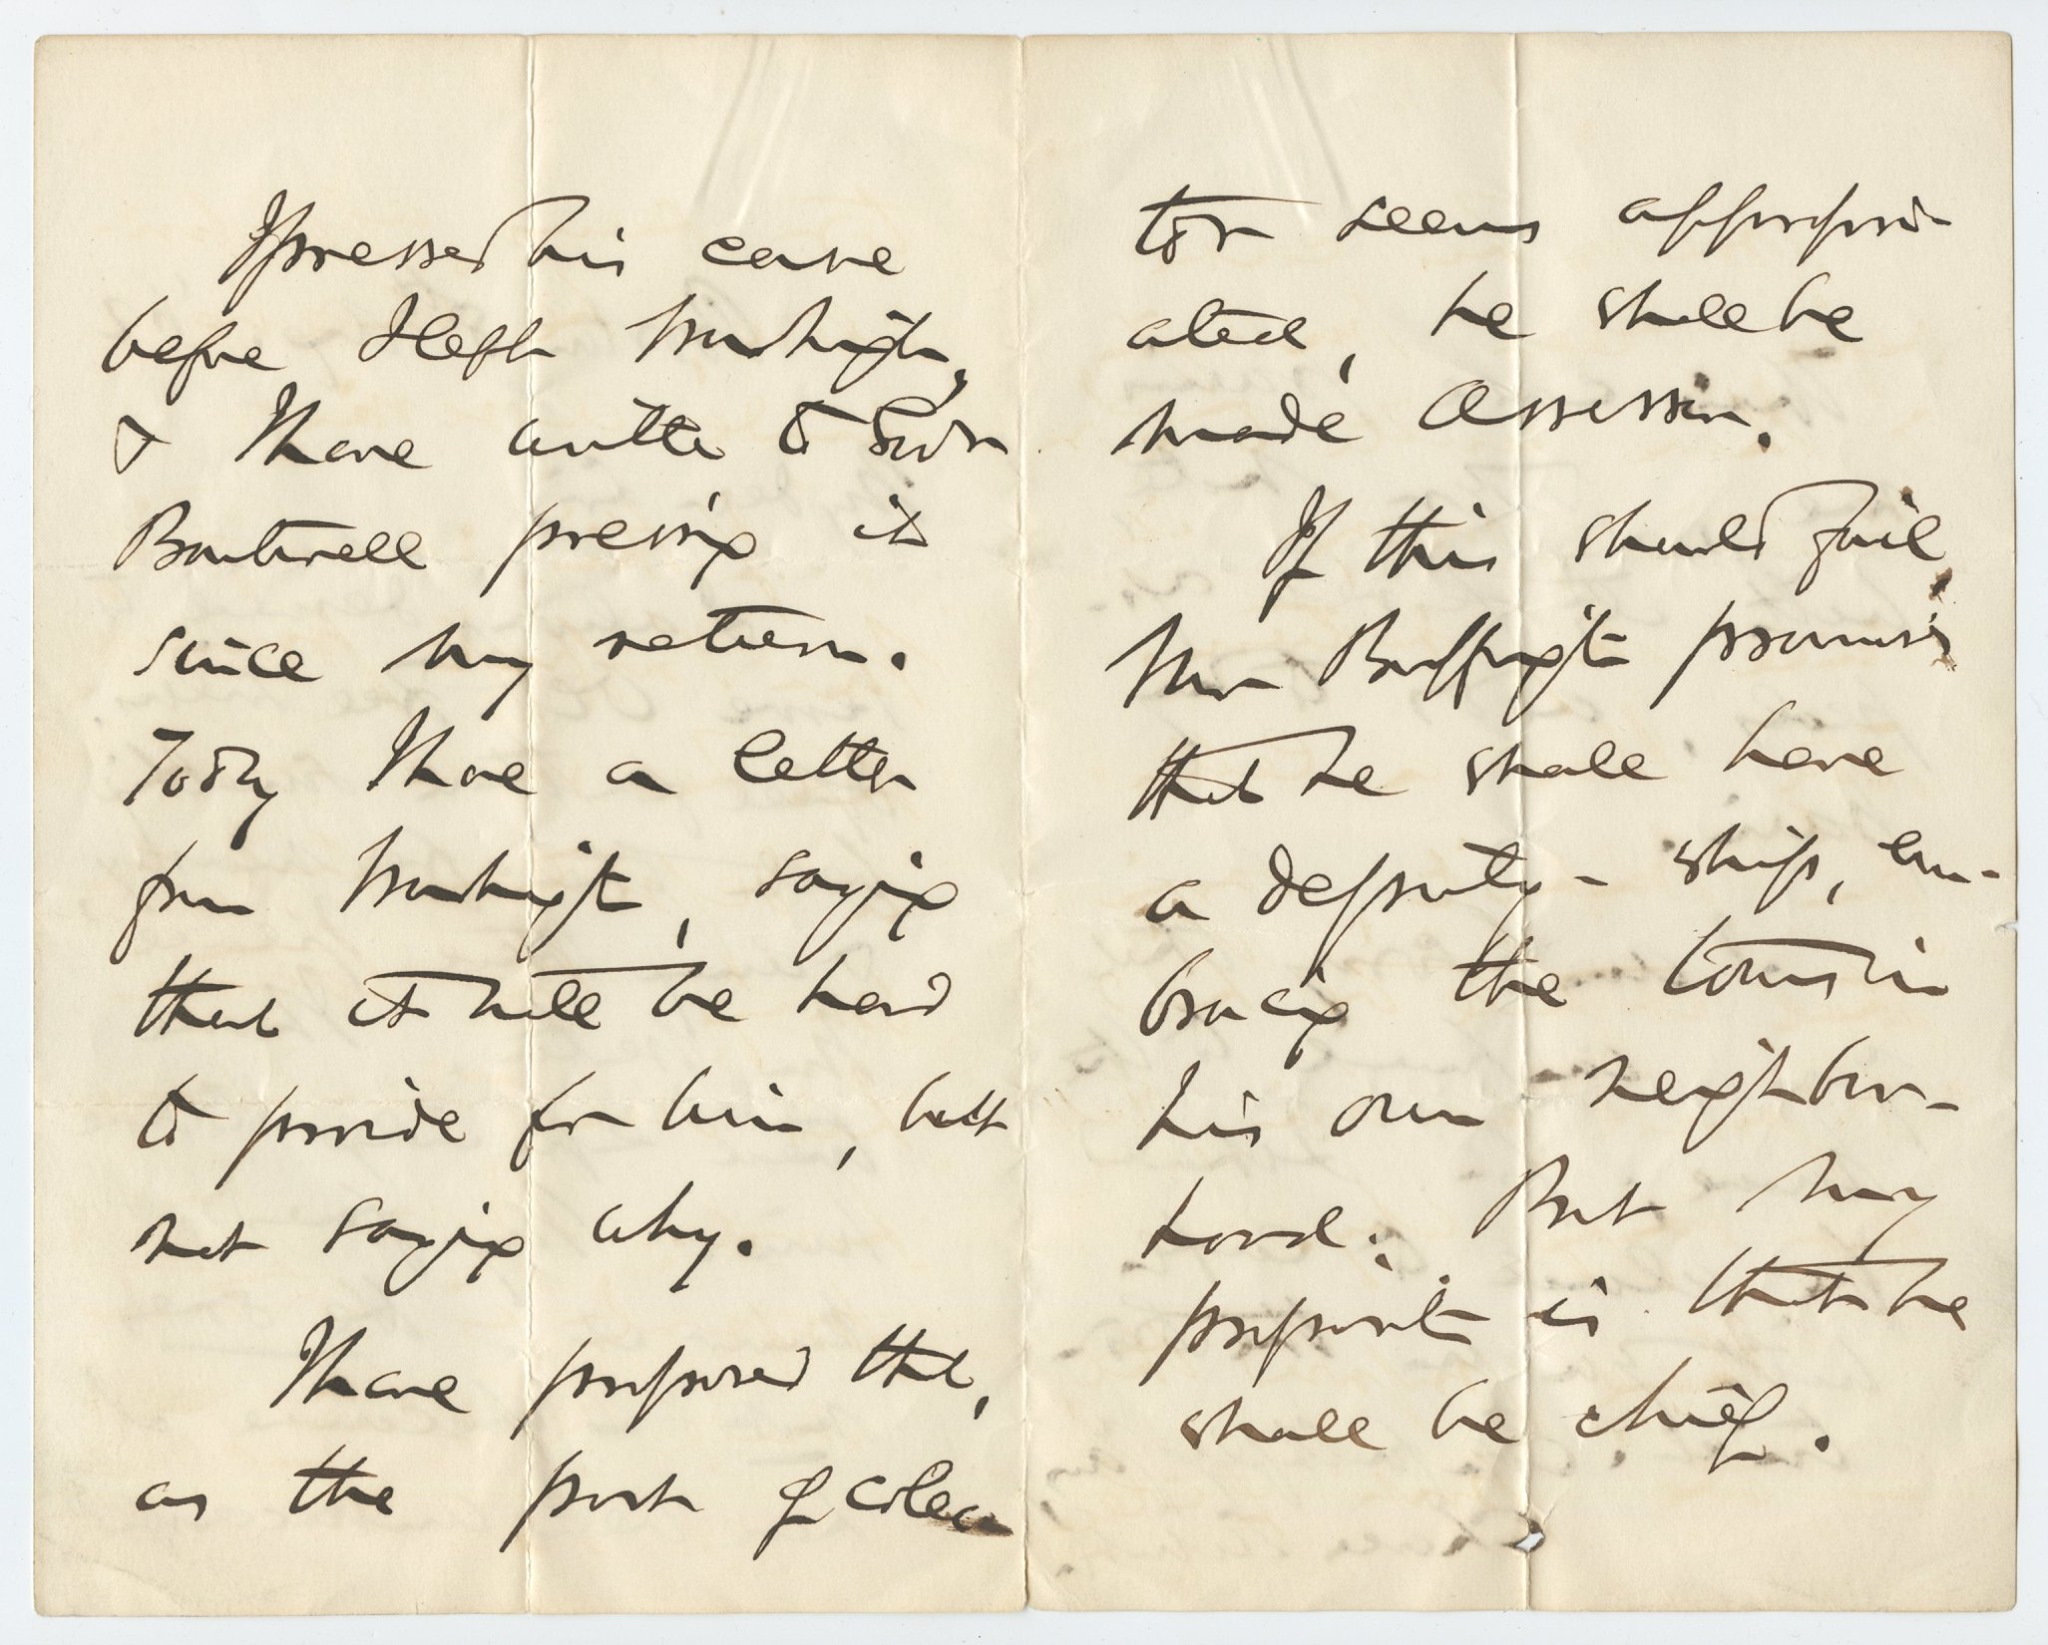 I pressed his case
before I left Washington,
& I have written to Gov
Boutwell pressing it
since my return.
Today I have a letter
from Washington, saying
that it will be hard
to provide for him, but
not saying why.
I have proposed that,
as the post of collec
tor seems appropri
ated, he shall be
made Assessor.
If this should fail,
Mr Buffington promises
that he shall have
a deputy-ship, em-
bracing the towns in
his own neighbor-
hood. But my
proposition is that he
shall be chief.